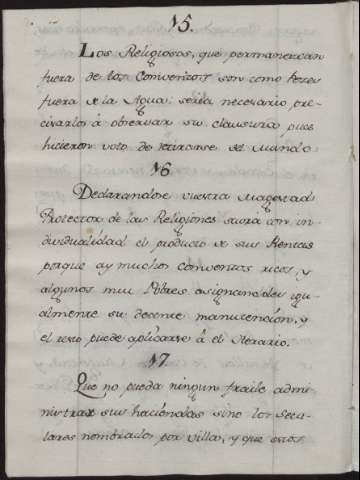 15.
Los Religiosos, que permanezcan
fuera de los Conventos son como Pezes
fuera de la Agua: seria necesario, pre-
cisarlos à observar su clausura pues
hicieron voto de retirarse del Mundo
16
Declarandose vuestra Magestad
Protector de las Religiones savrá con in-
dividualidad el producto de sus Rentas
porque ay muchos conventos ricos, y
algunos mui Pobres asignandoles igu-
almente su decente manutencion, y
el resto puede aplicarse à el Herario.
17
Que no pueda ningun fraile admi-
nistrar sus haciendas sino los Secu-
lares nombrados por villa, y que estos